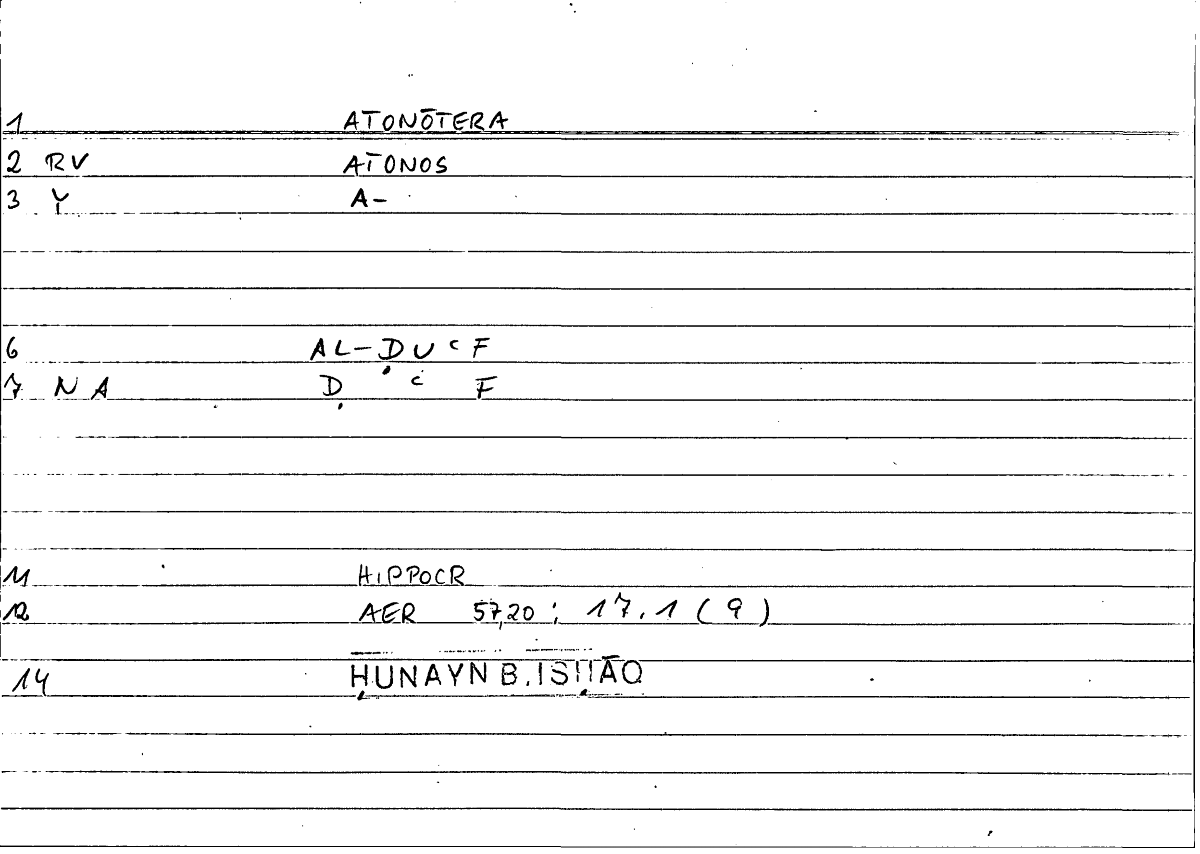 1 ATONŌTERA
2 RV ATONOS
3 Y A-
6 AL-ḌUʿF
7 N A Ḍ ʿ F
11 HIPPOCR
12 AER 57,20 ; 17.1 ( 9 )
14 ḤUNAYN B. ISḤĀQ